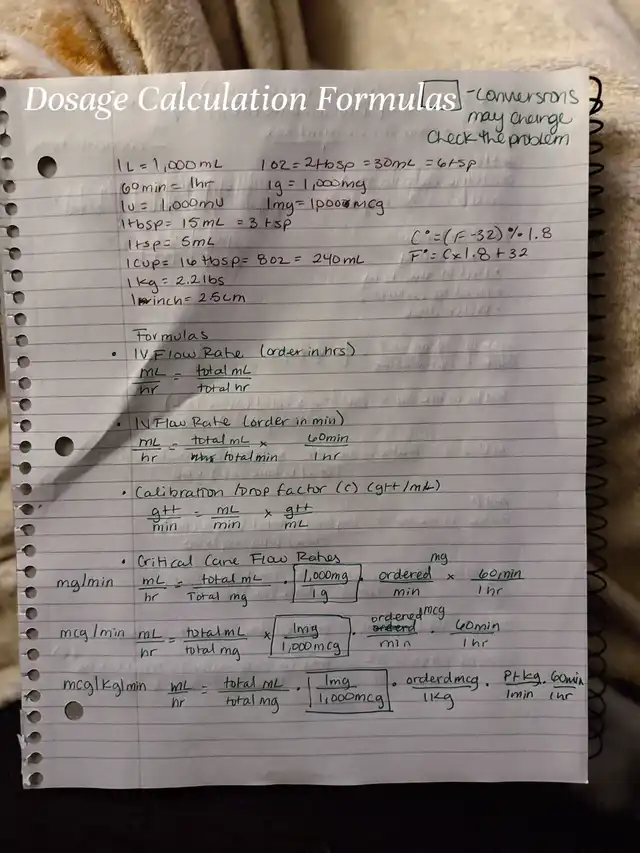 Dosage Calculation Formulas
-conversions
may change
Check the problem
1L = 1,000mL 1oz = 2tbsp = 30mL = 6tsp
60min = 1hr 1g = 1,000mg
1u = 1,000mU 1mg = 1,000mcg
1tbsp = 15mL = 3tsp
1tsp = 5mL C° = (F-32) % 1.8
1cup = 16tbsp = 8oz = 240mL F° = C x 1.8 + 32
1kg = 2.2lbs
1 inch = 2.5cm
Formulas
• IV Flow Rate (order in hrs)
mL/hr = total mL/total hr
• IV Flow Rate (order in min)
mL/hr = total mL/total min x 60min/1hr
• Calibration/Drop factor (c) (gtt/mL)
gtt/min = mL/min x gtt/mL
• Critical Care Flow Rates
mg/min mL/hr = total mL/Total mg · 1,000mg/1g · ordered mg/min x 60min/1hr
mcg/min mL/hr = total mL/total mg x 1mg/1,000mcg · ordered mcg/min · 60min/1hr
mcg/kg/min mL/hr = total mL/total mg · 1mg/1,000mcg · orderd mcg/1kg · Pt kg/1min · 60min/1hr